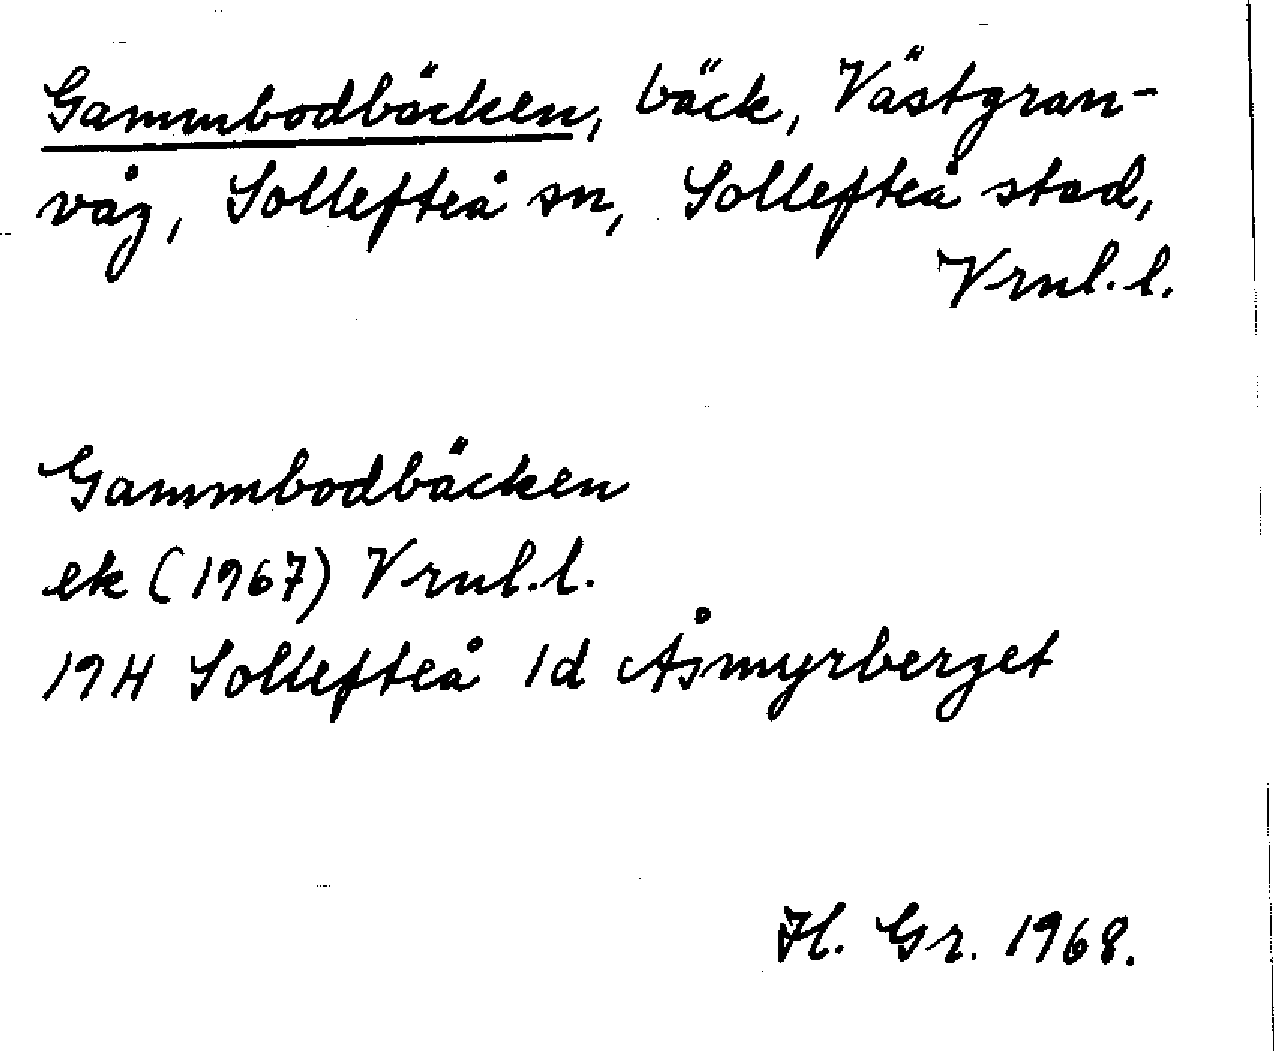 Gammbodbäcken, bäck, Västgran-
våg, Sollefteå sn, Sollefteå stad,
Vrnl.l.
Gammbodbäcken
ek (1967) Vrnl.l.
19H Sollefteå 1d Åsmyrberget
H. Gr. 1968.